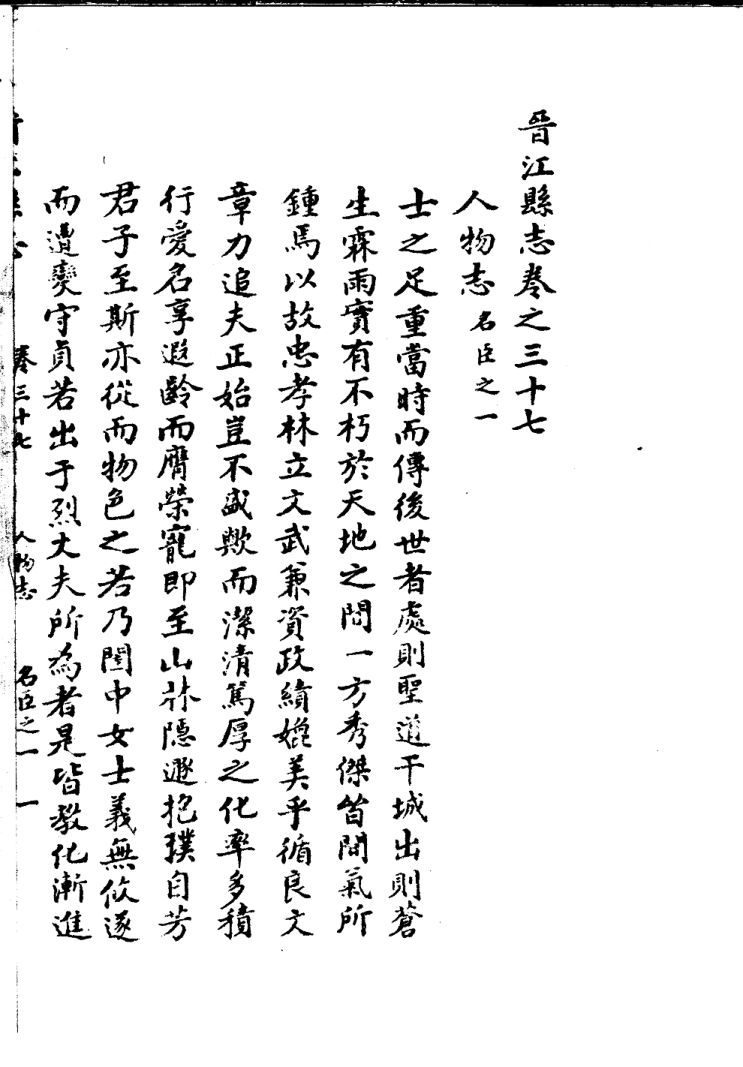 晉江縣志卷之三十七
人物志 名臣之一
士之足重當時而傳後世者處則聖道干城出則蒼
生霖雨實有不朽於天地之間一方秀傑皆間氣所
鍾焉以故忠孝林立文武兼資政績媲美乎循良文
章力追夫正始豈不盛歟而潔清篤厚之化率多積
行愛名享遐齡而膺榮寵即至山林隱遯抱璞自芳
君子至斯亦從而物色之若乃閨中女士義無攸遂
而遭變守貞若出于烈丈夫所為者是皆教化漸進
卷三十七 人物志 名臣之一 一